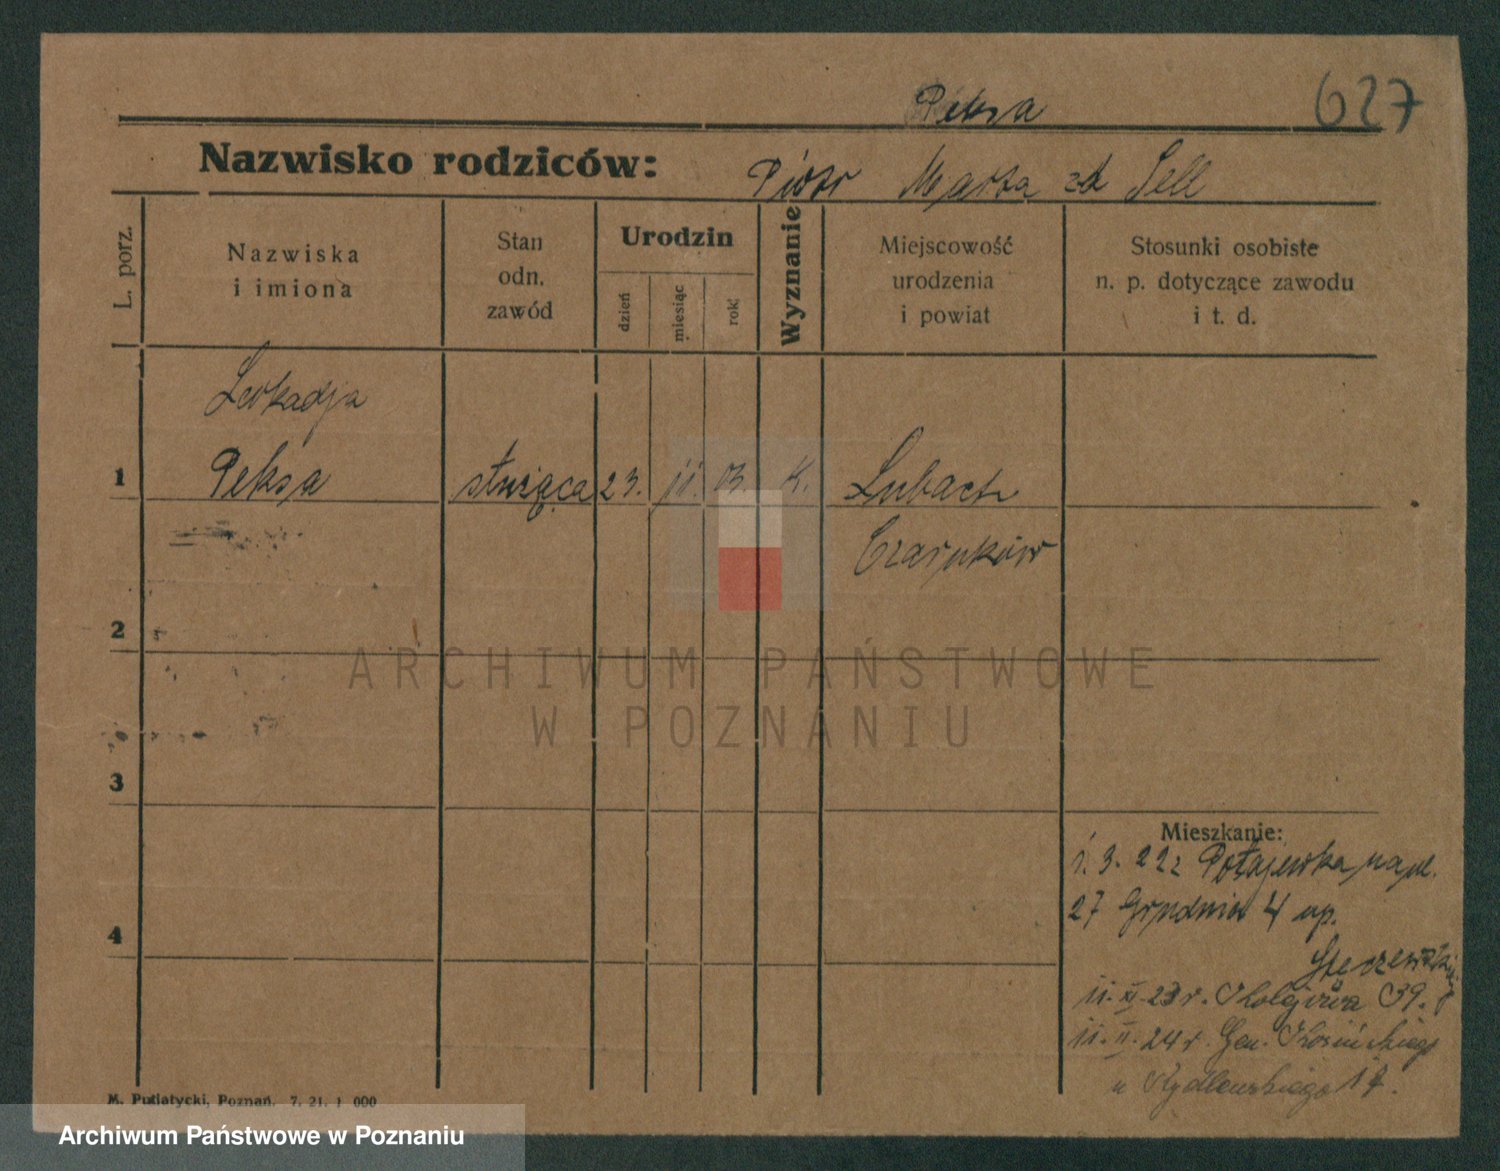 Peksa 627
Nazwisko rodziców: Piotr Marta zd Sell
L. porz.
Nazwiska
i imiona
Stan
odn.
zawód
Urodzin
dzień
miesiąc
rok
Wyznanie
Miejscowość
urodzenia
i powiat
Stosunki osobiste
n. p. dotyczące zawodu
i t. d.
Leokadja
1 Peksa służąca 23. 11. 03. K. Lubacz
Czarnków
2
3
4
Mieszkanie:
1. 3. 22 z Połajewka
27 Grudnia 4 up.
11. XI. 23 r. Kolejowa 39.
11. II. 24 r. Gen. Kosińskiego
u Rydlewskiego 17.
M. Putiatycki, Poznań. 7. 21. 1 000
ARCHIWUM PAŃSTWOWE
W POZNANIU
Archiwum Państwowe w Poznaniu